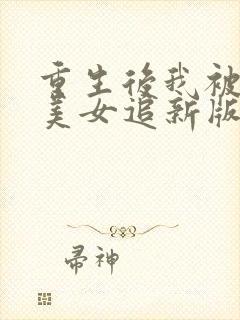 重生後我被
美女追新版
帚神